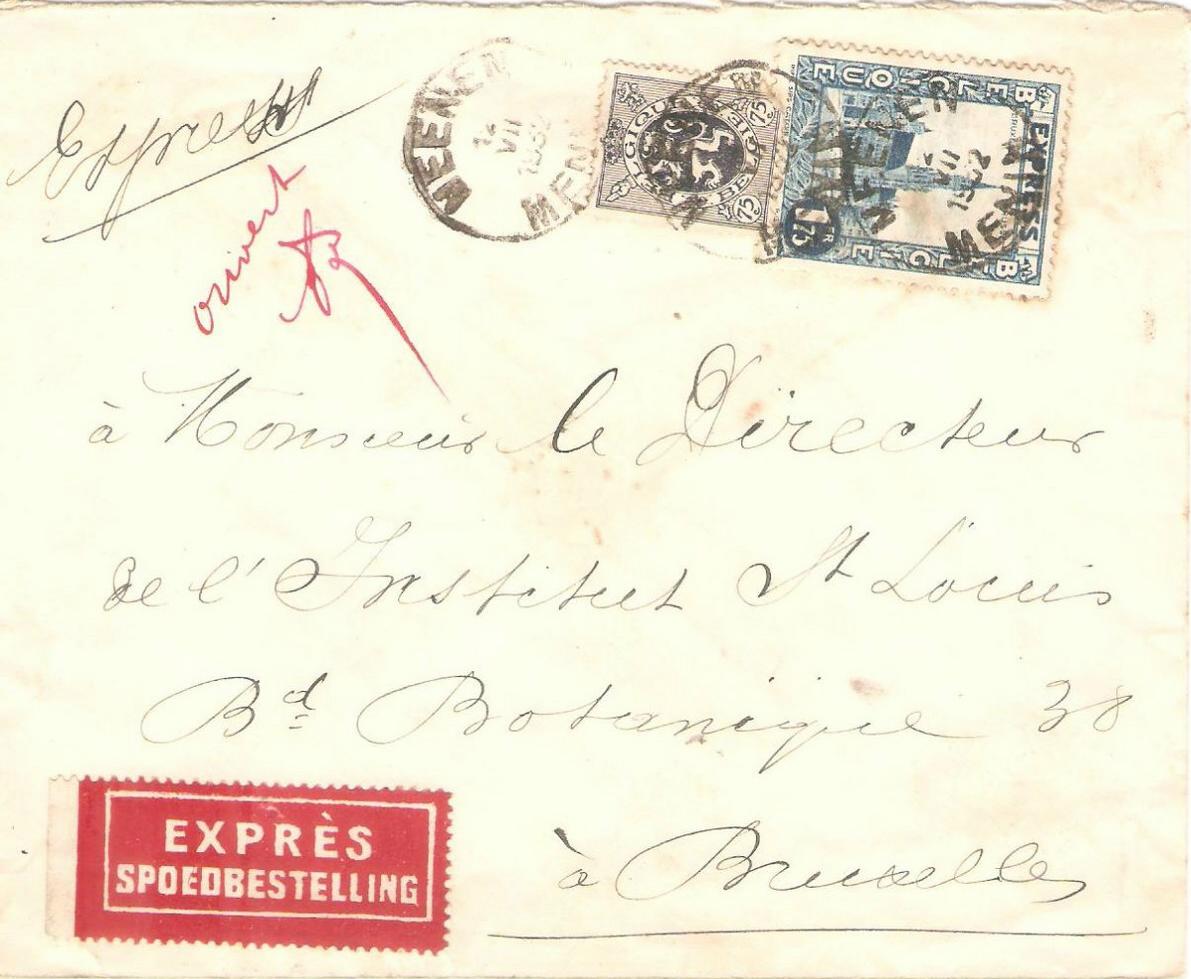 Express
ouvert
MEENEN
VII
1932
MENIN
BELGIQUE BELGIË
75
75
BELGIQUE
EXPRESS
BELGIË
1FR
75
MEENEN
VII
1932
MENIN
à Monsieur le Directeur
de l'Institut St Louis
Bd Botanique 38
à Bruxelles
EXPRÈS
SPOEDBESTELLING